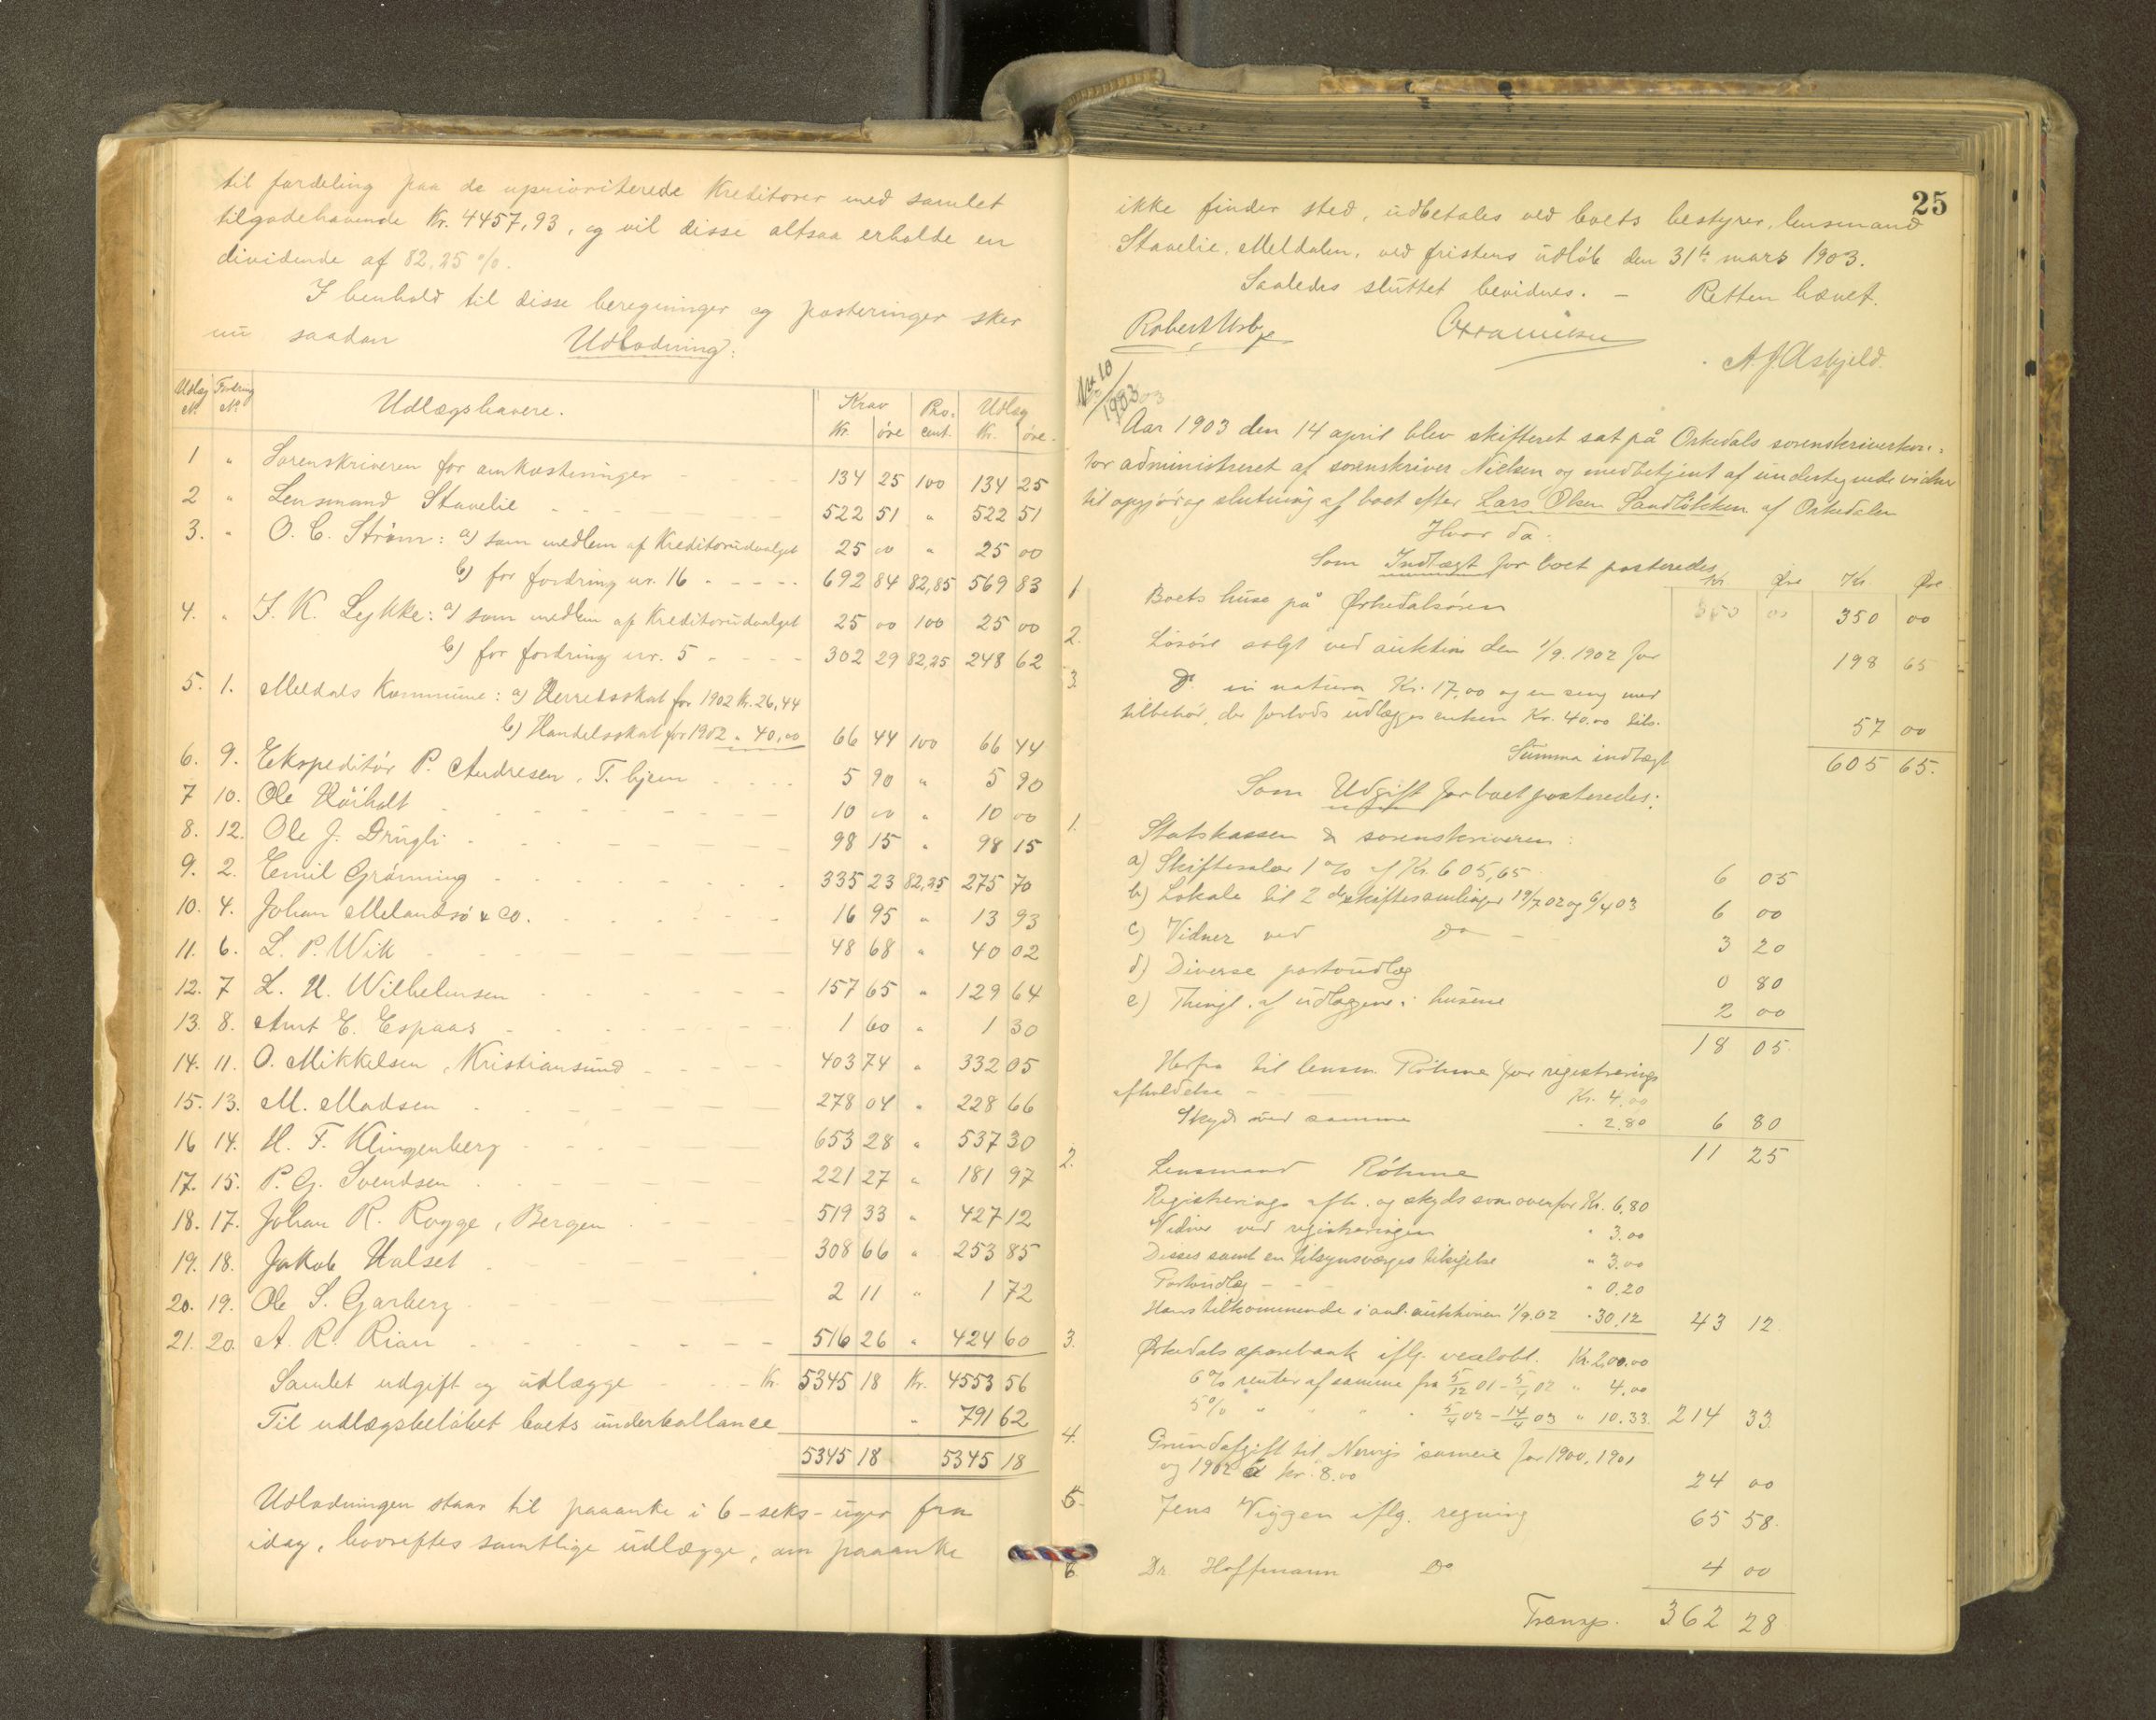 til fordeling paa de uprioriterede Kreditorer med samlet
tilgodehavende Kr. 4457,93, og vil disse altsaa erholde en
dividende af 82,25 %.
I henhold til disse beregninger og posteringer sker
nu saadan Udlodning:
Udlæg No. Fordring No. Udlægshavere. Krav Kr. øre Pro. cent. Udlæg Kr. øre.
1 " Sorenskriveren for omkostninger 134 25 100 134 25
2 " Lensmand Stavelie 522 51 " 522 51
3. " O. C. Strøm: a) som medlem af Kreditorudvalget 25 00 " 25 00
b) for fordring nr. 16 692 84 82,85 569 83
4. " J. K. Lykke: a) som medlem af Kreditorudvalget 25 00 100 25 00
b) for fordring nr. 5 302 29 82,25 248 62
5. 1. Meldals Kommune: a) Herredsskat for 1902 Kr. 26,44
b) Handelsskat for 1902 " 40,00 66 44 100 66 44
6. 9. Ekspeditør P. Andresen, T. hjem 5 90 " 5 90
7 10. Ole Høiholt 10 00 " 10 00
8. 12. Ole J. Drugli 98 15 " 98 15
9. 2. Emil Grønning 335 23 82,25 275 70
10. 4. Johan Melandsø & Co. 16 95 " 13 93
11. 6. L. P. Wik 48 68 " 40 02
12. 7 L. H. Wilhelmsen 157 65 " 129 64
13. 8. Arnt E. Espaas 1 60 " 1 30
14. 11. O. Mikkelsen, Kristiansund 403 74 " 332 05
15. 13. M. Madsen 278 04 " 228 66
16 14. H. F. Klingenberg 653 28 " 537 30
17. 15. P. G. Svendsen 221 27 " 181 97
18. 17. Johan R. Rogge, Bergen 519 33 " 427 12
19. 18. Jakob Halset 308 66 " 253 85
20. 19. Ole S. Garberg 2 11 " 1 72
21. 20. A. R. Rian 516 26 " 424 60
Samlet udgift og udlægge Kr. 5345 18 Kr. 4553 56
Til udlægsbeløbet boets underballance " 791 62
5345 18 5345 18
Udlodningen staar til paaanke i 6 - seks - uger fra
idag, hvorefter samtlige udlægge, om paaanke
25
ikke finder sted, udbetales ved boets bestyrer, lensmand
Stavelie, Meldalen, ved fristens udløb den 31te mars 1903.
Saaledes sluttet bevidnes. - Retten hævet.
Robert Usby
A. J. Asbjeld.
No 10/1903
Aar 1903 den 14 april blev skifteret sat på Orkedals sorenskriverkon-
tor administreret af sorenskriver Nielsen og medbetjent af undertegnede vidner
til opgjør og slutning af boet efter Lars Olsen Sandløkken af Orkedalen
Hvor da:
Som Indtægt for boet posteredes
Kr. Øre Kr. Øre
1 Boets huse på Ørkedalsøren 350 00 350 00
2. Løsøre solgt ved auktion den 1/9. 1902 for 198 65
3. Do in natura Kr. 17,00 og en seng med
tilbehør, der forlods udlægges enken Kr. 40.00 tils. 57 00
Summa indtægt 605 65.
Som Udgift for boet posteredes:
1. Statskassen & sorenskriveren:
a) Skiftesalær 1 % af Kr. 605,65 6 05
b) Lokale til 2 de skiftesamlinger 19/7 02 og 6/4 03 6 00
c) Vidner ved Do 3 20
d) Diverse portoudlæg 0 80
e) Thingl. af udlæggene i husene 2 00
18 05
Herfra til lensm. Röhme for registrerings
afholdelse - Kr. 4.00
Skyds ved samme " 2.80 6 80
11 25
2. Lensmand Röhme
Registrerings afh. og skyds som ovenfor Kr. 6,80
Vidner ved registreringen " 3.00
Disses samt en tilsynsværges tilsigelse " 3.00
Portoudlæg - " 0.20
Hans tilkommende i anl. auktionen 1/9.02 " 30.12 43 12.
3. Ørkedals sparebank iflg. vexelobl. Kr. 200.00
6 % renter af samme fra 5/12 01 - 5/4 02 " 4.00
5 % " " " 5/4 02 - 14/4 03 " 10.33 214 33
4. Grundafgift til Nervigs sameie for 1900, 1901
og 1902 á kr. 8.00 24 00
5. Jens Viggen iflg. regning 65 58.
6. Dr. Hoffmann Do 4 00
Transp. 362 28